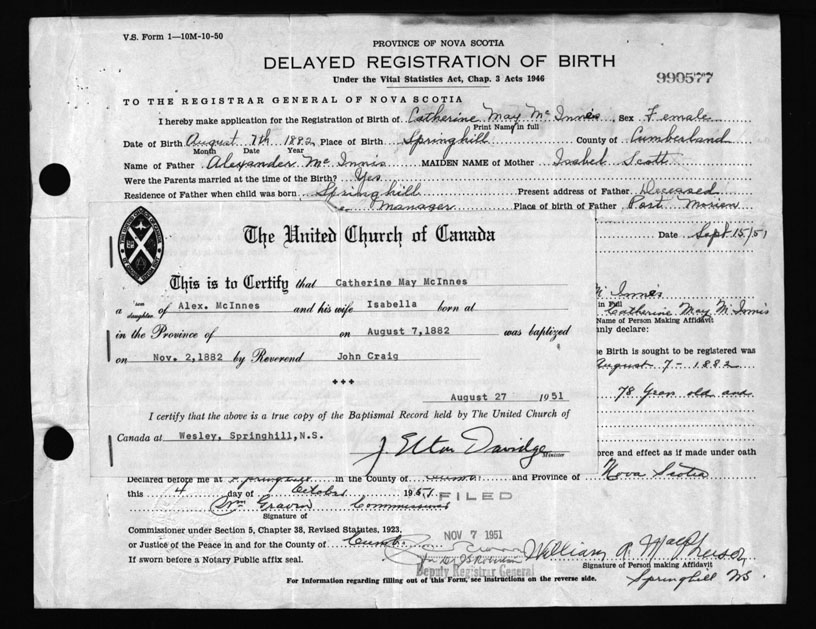 V.S. Form 1—10M-10-50
PROVINCE OF NOVA SCOTIA
DELAYED REGISTRATION OF BIRTH
Under the Vital Statistics Act, Chap. 3 Acts 1946
990577
TO THE REGISTRAR GENERAL OF NOVA SCOTIA
I hereby make application for the Registration of Birth of Catherine May McInnis, Sex Female
Print Name in full
Date of Birth August 7th 1882 Place of Birth Springhill County of Cumberland
Month Date Year
Name of Father Alexander McInnis MAIDEN NAME of Mother Isabel Scott
Were the Parents married at time of the Birth? Yes
Residence of Father when child was born Springhill Present address of Father Deceased
Manager Place of birth of Father Port Morien
Date Sept 15/51
The United Church of Canada
This is to Certify that Catherine May McInnes
a son daughter of Alex. McInnes and his wife Isabella born at
in the Province of on August 7,1882 was baptized
on Nov. 2,1882 by Reverend John Craig
+++
August 27 1951
I certify that the above is a true copy of the Baptismal Record held by The United Church of
Canada at Wesley, Springhill,N.S.
J. Elton Davidge
Minister
McInnis
in Full
Catherine May McInnis
Name of Person Making Affidavit
nly declare:
e Birth is sought to be registered was
August 7 - 1882
78 years old and
orce and effect as if made under oath
Declared before me at Springhill in the County of Cumb. and Province of Nova Scotia
this 4 day of October 1951
FILED
Wm Commissioner
Signature of
Commissioner under Section 5, Chapter 38, Revised Statutes, 1923,
or Justice of the Peace in and for the County of Cumb.
If sworn before a Notary Public affix seal.
NOV 7 1951
Deputy Registrar General
William A. MacPherson
Signature of Person making Affidavit
Springhill NS.
For Information regarding filling out of this Form, see instructions on the reverse side.